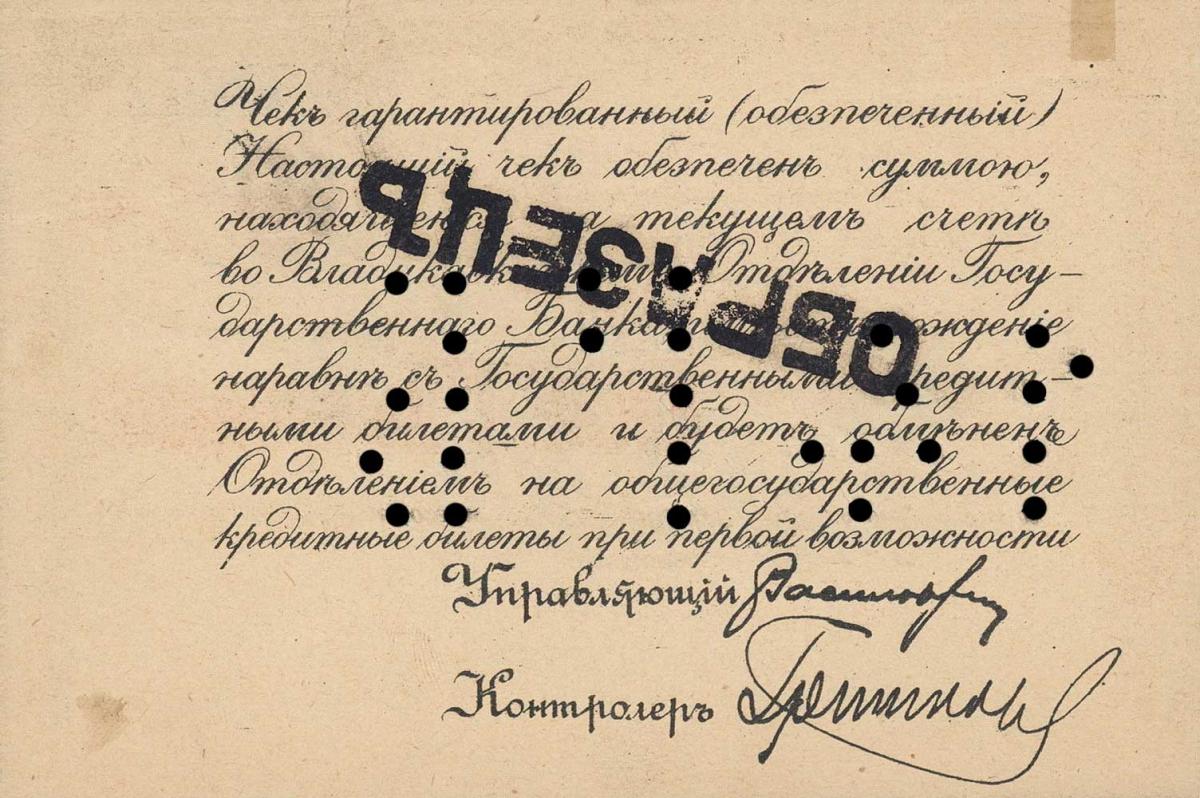 Чекъ гарантированный (обезпеченный)
Настоящій чекъ обезпеченъ суммою,
находящеюся на текущемъ счетѣ
во Владикавказскомъ Отдѣленіи Госу-
дарственнаго Банка, имѣетъ хожденіе
наравнѣ съ Государственными кредит-
ными билетами и будетъ обмѣненъ
Отдѣленіемъ на общегосударственные
кредитные билеты при первой возможности
ОБРАЗЕЦЪ
Управляющій
Контролеръ